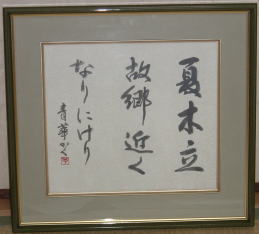 夏木立
故郷近く
なりにけり
青華かく